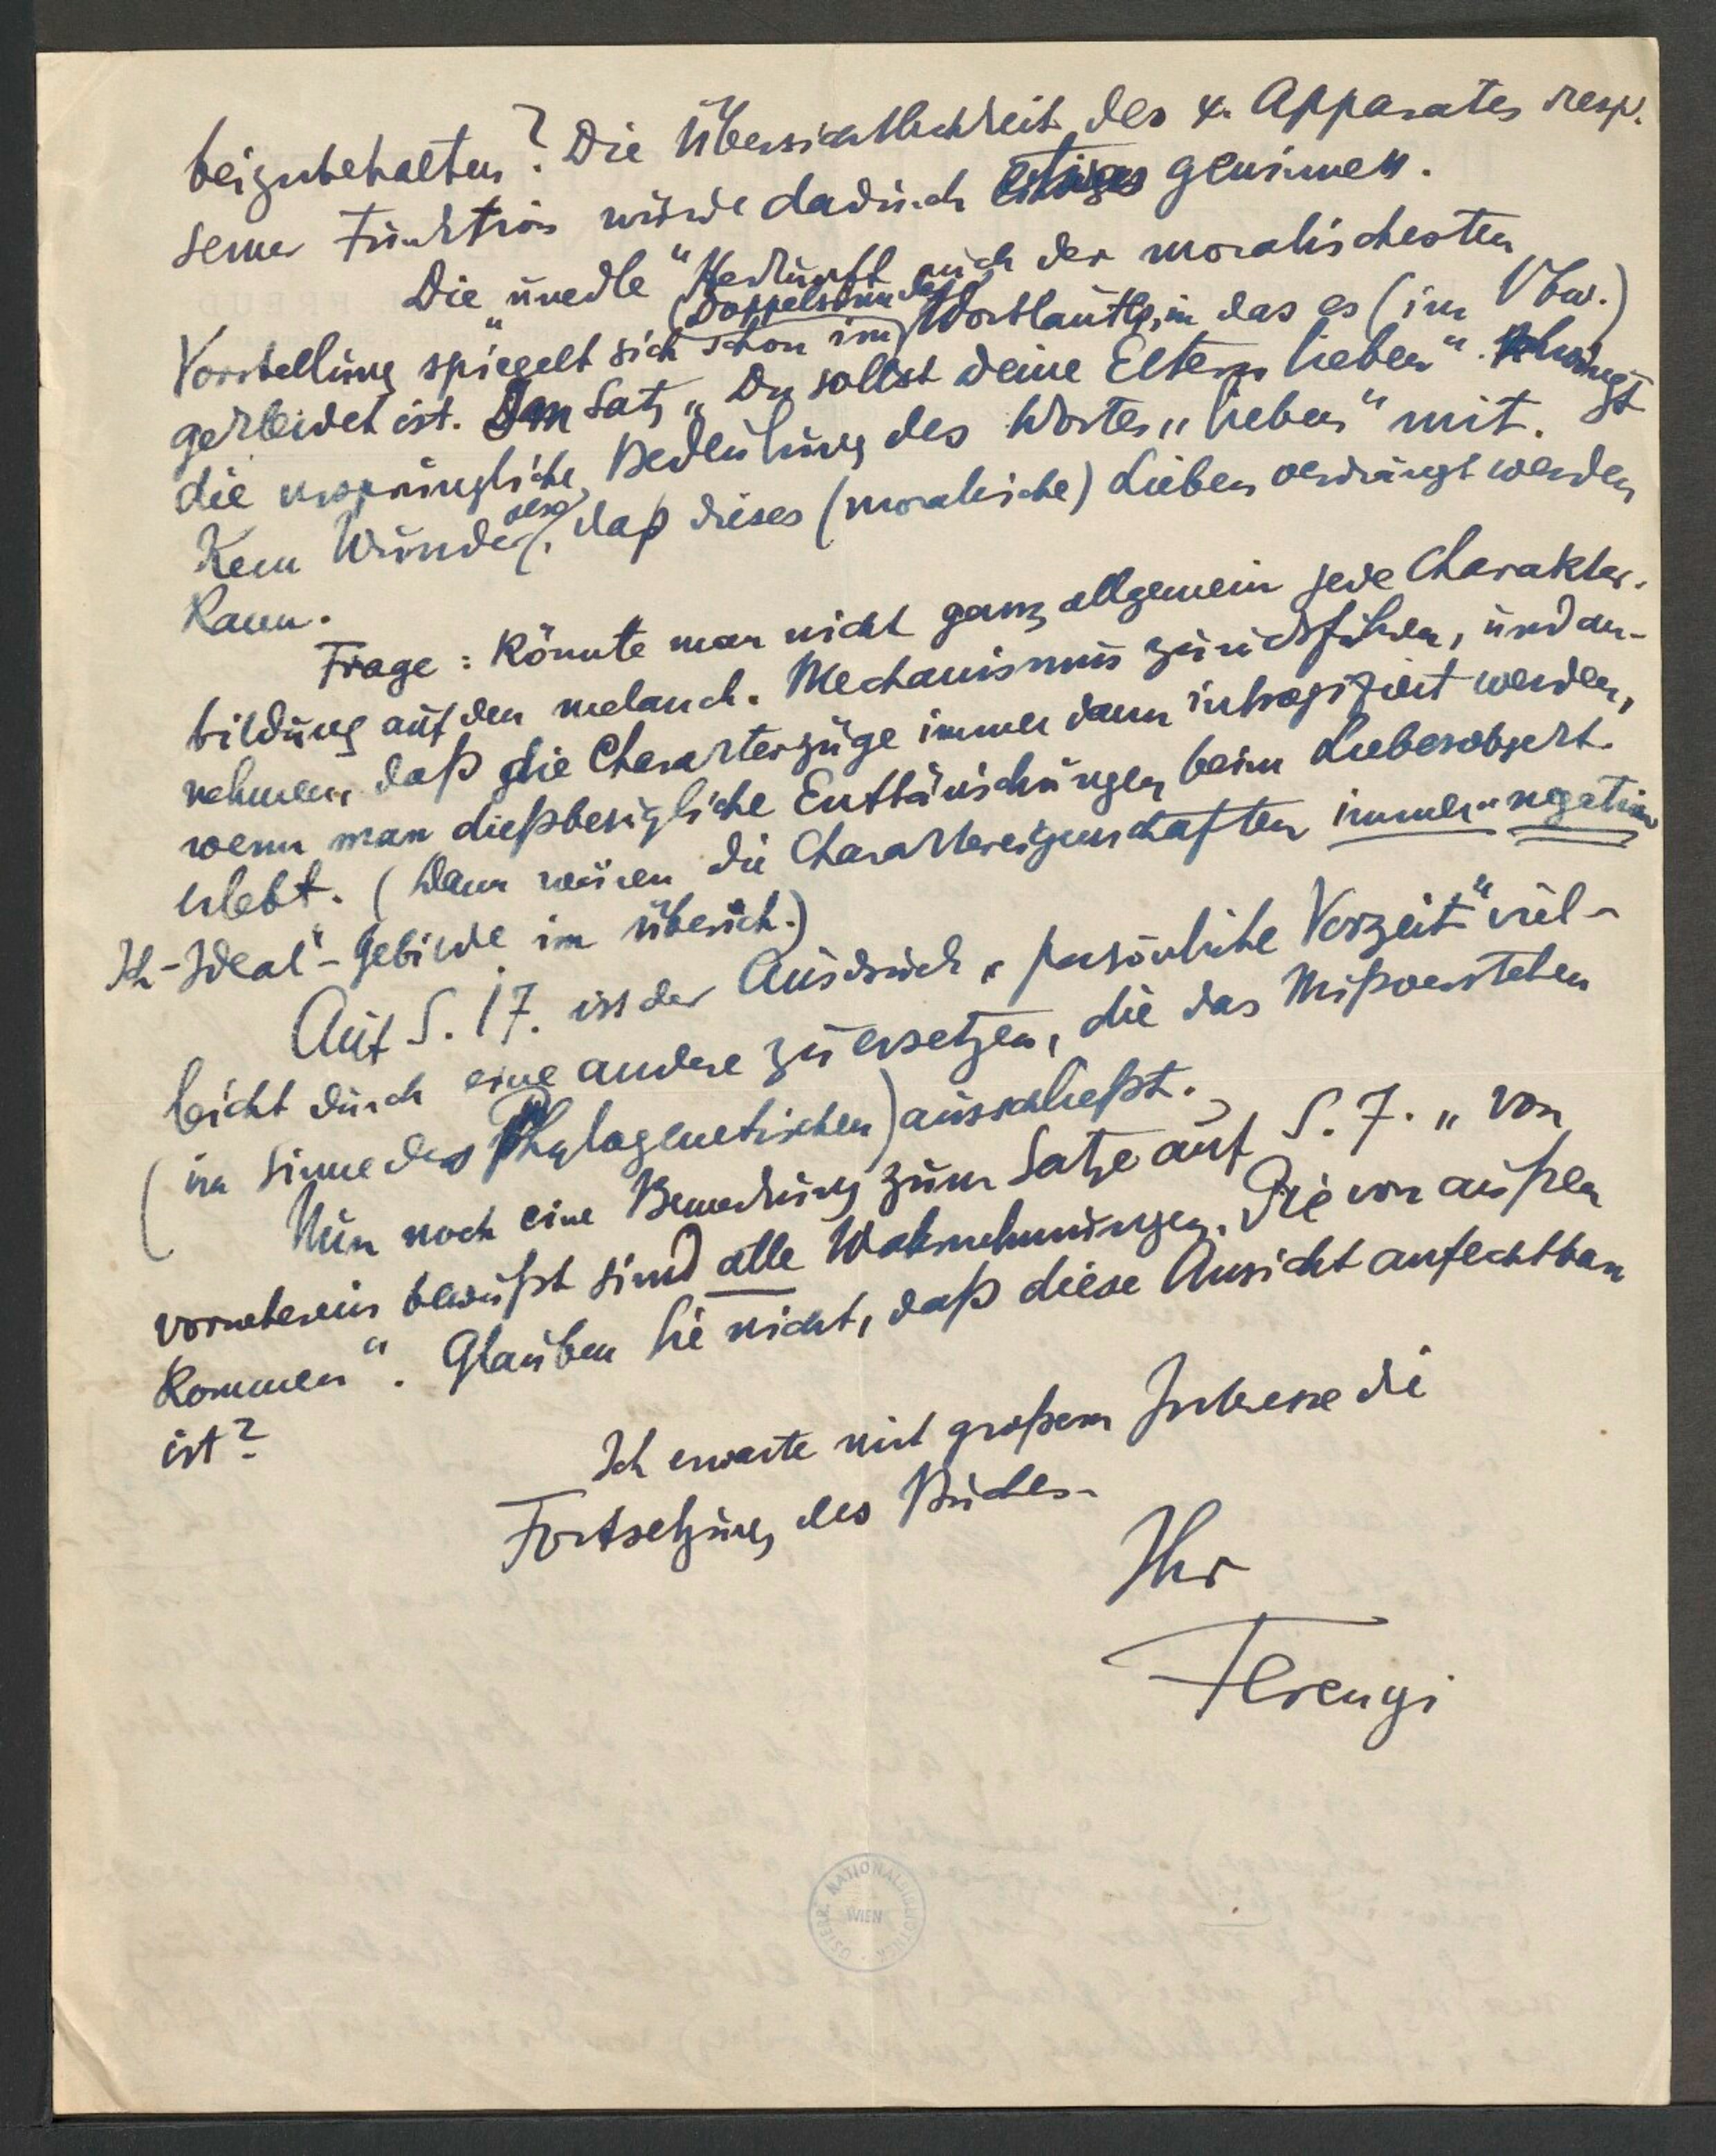 beizubehalten? Die Übersichtlichkeit des ψ. Apparates resp.
seiner Funktion würde dadurch einiges gewinnen.
Die „unedle" Herkunft auch der moralischesten
Vorstellung spiegelt sich schon im (Doppelsinn des) Wortlauts, in das es (im Vbw.)
gekleidet ist. Im Satz „Du sollst deine Eltern lieben" schwingt
die ursprüngliche Bedeutung des Wortes „lieben" mit.
Kein Wunder also, daß dieses (moralische) Lieben verdrängt werden
kann.
Frage: Könnte man nicht ganz allgemein jede Charakter-
bildung auf den melanch. Mechanismus zurückführen, und an-
nehmen, daß die Charakterzüge immer dann introjiziert werden,
wenn man dießbezügliche Enttäuschungen beim Liebesobjekt
erlebt. (Dann wären die Charaktereigenschaften immer „negative
Ich-Ideal"-Gebilde im Überich.)
Auf S. 17. ist der Ausdruck „persönliche Vorzeit" viel-
leicht durch eine andere zu ersetzen, die das Mißverstehen
(im Sinne des Phylogenetischen) ausschließt.
Nun noch eine Bemerkung zum Satze auf S. 7. „Von
vorneherein bewußt sind alle Wahrnehmungen, die von außen
kommen". Glauben Sie nicht, daß diese Ansicht anfechtbar
ist?
Ich erwarte mit großem Interesse die
Fortsetzung des Buches.
Ihr
Ferenczi
ÖSTERR. NATIONALBIBLIOTHEK
WIEN